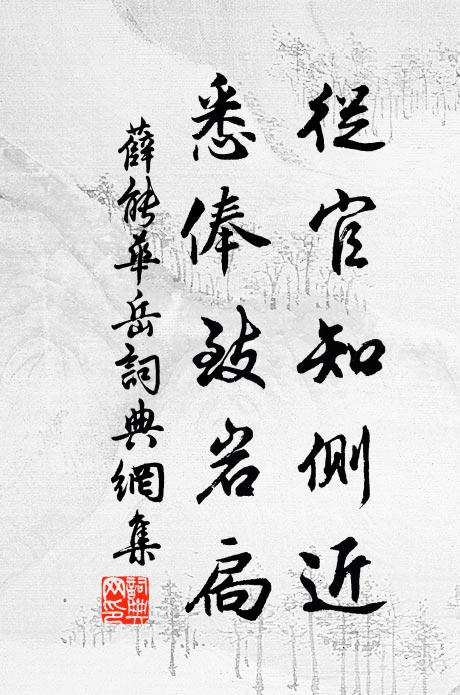 從官知側近
悉俸致岩扃
薛能華岳詞典網集
詞典
网印